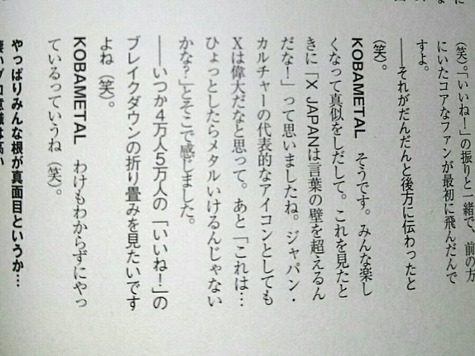 (笑)。「いいね!」の振りと一緒で、前の方
にいたコアなファンが最初に飛んだんで
すよ。
――それがだんだんと後方に伝わったと
(笑)。
KOBAMETAL そうです。みんな楽し
くなって真似をしだして。これを見たと
きに「X JAPANは言葉の壁を超えるん
だな!」って思いましたね。ジャパン・
カルチャーの代表的なアイコンとしても
Xは偉大だなと思って。あと「これは…
ひょっとしたらメタルいけるんじゃない
かな?」とそこで感じました。
――いつか4万人5万人の「いいね!」の
ブレイクダウンの折り畳みを見たいです
よね(笑)。
KOBAMETAL わけもわからずにやっ
ているっていうね(笑)。
やっぱりみんな根が真面目というか…